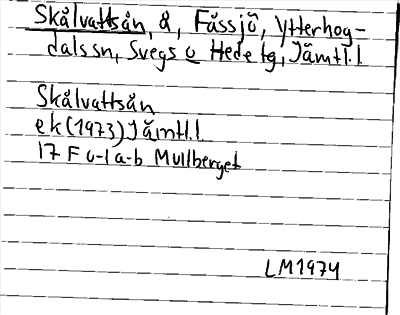 Skålvattsån, å, Fåssjö, Ytterhog-
dals sn, Svegs o Hede tg, Jämtl. l
Skålvattsån
ek (1973) Jämtl. l
17 F 0-1 a-b Mullberget
LM 1974